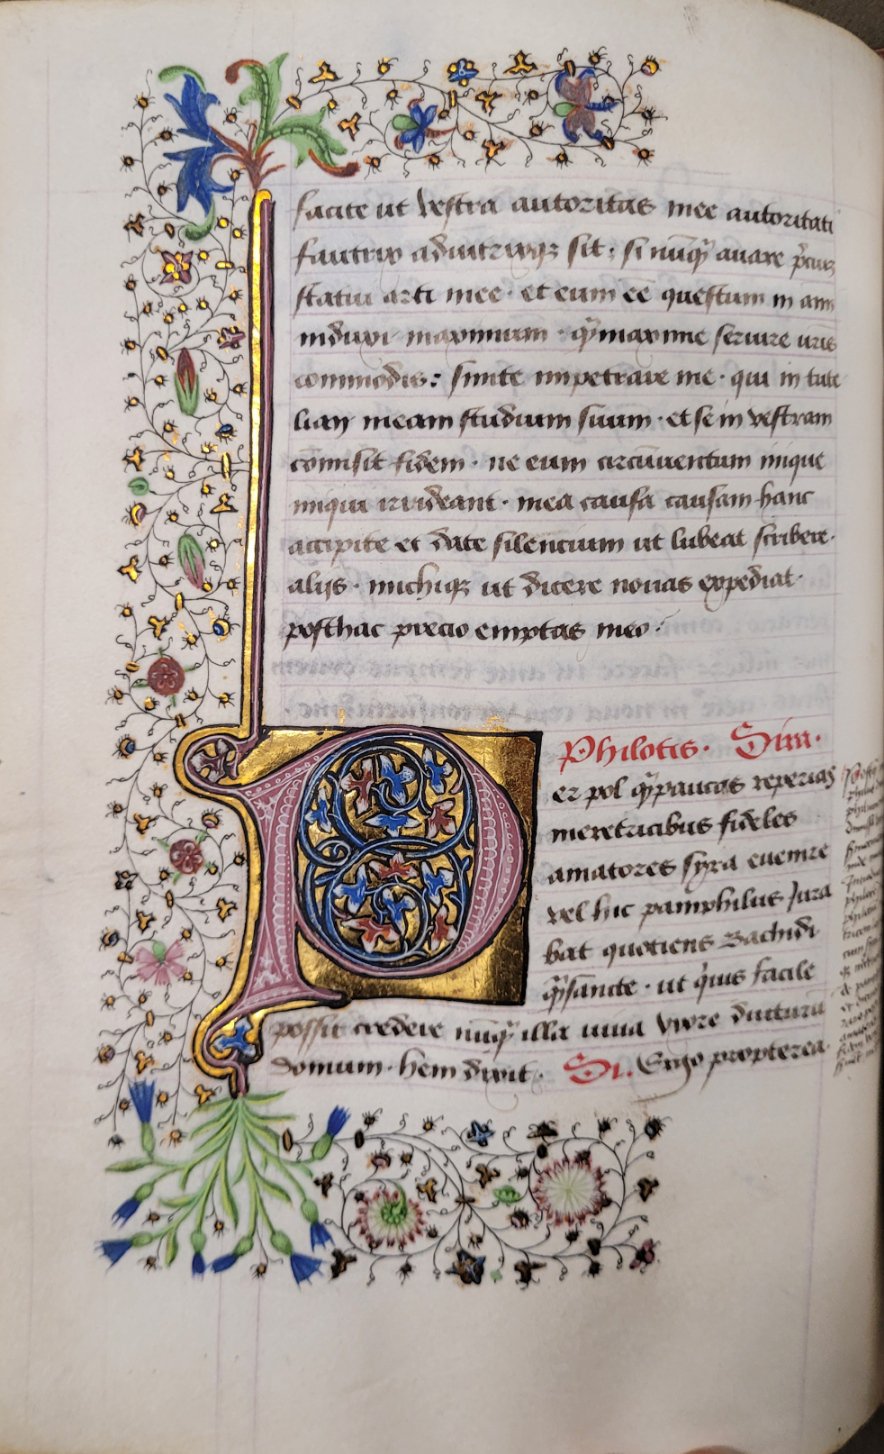 facite ut vestra autoritas mee autoritati
fautrix adiutrixqꝫ sit· si nūq̄ auare p̄ciū
statui arti mee· et eum eē questum in ani
induxi maximum· q̄ maxime seruire uris
commodis: sinite impetrare me· qui in tute
lam meam studium suum· et se in vestram
cōmisit fidem· ne eum circumuentum inique
iniqui irrideant· mea causa causam hanc
accipite et date silencium ut lubeat scribere·
alijs· michiqꝫ ut dicere nouas expediat·
posthac precio emptas meo:·
Philotis· Sira·
P er pol q̄ paucos reperias
meretricibus fideles
amatores syra euenire
vel hic pamphilus Jura
bat quotiens Bachidi
q̄ sancte· ut q̇uis facile
possit credere nūq̄ illa uiua vxore ducturū
domum· hem dixit· Si. Ergo propterea·